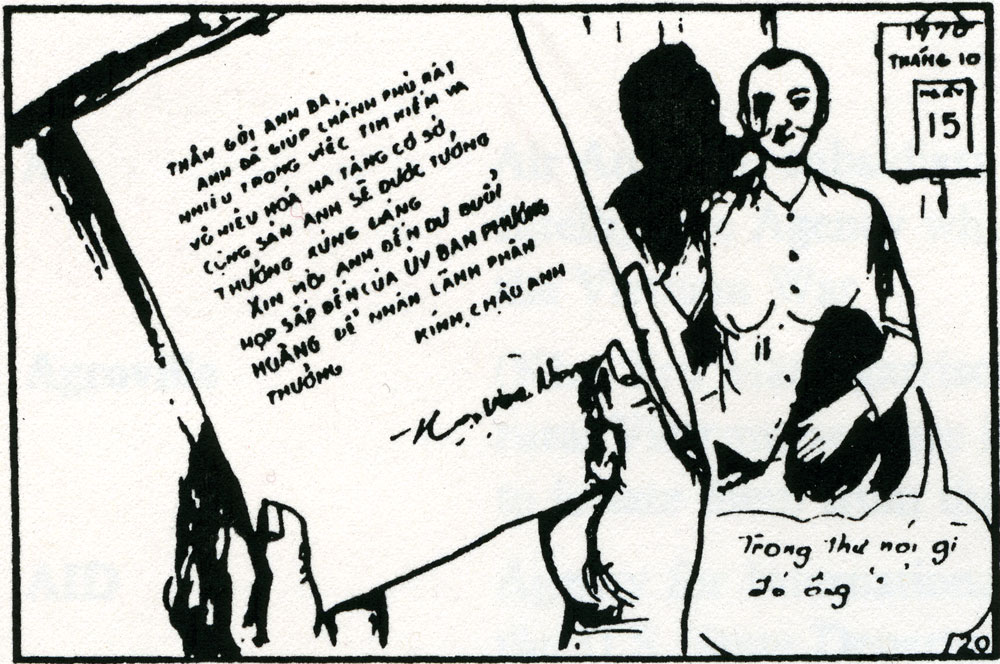 THÂN GỞI ANH BA,
ANH ĐÃ GIÚP CHÁNH PHỦ RẤT
NHIỀU TRONG VIỆC TÌM KIẾM VÀ
VÔ HIỆU HOÁ HẠ TẦNG CƠ SỞ,
CÙNG SẢN ANH SẼ ĐƯỢC TƯỞNG
THƯỞNG XỨNG ĐÁNG
XIN MỜI ANH ĐẾN DỰ BUỔI
HỌP SẮP ĐẾN CỦA ỦY BAN PHƯỢNG
HOÀNG ĐỂ NHẬN LÃNH PHẦN
THƯỞNG
KÍNH CHÀO ANH
1970
THÁNG 10
NGÀY
15
Trong thư nói gì
đó ông
120